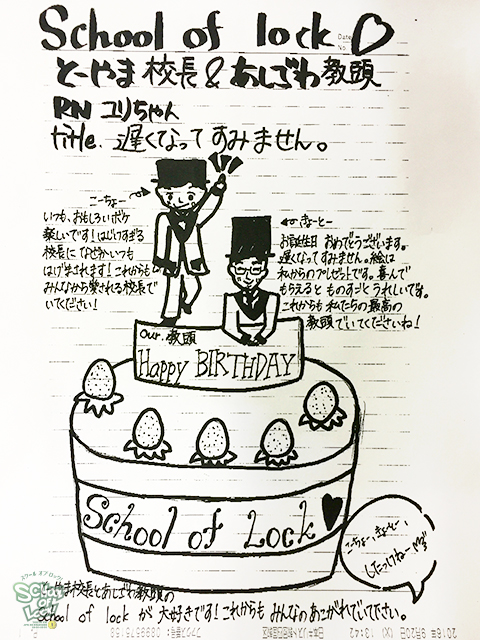 School of lock ♡
Date
No.
とーやま校長&あしざわ教頭
RN ユリちゃん
title. 遅くなってすみません。
こーちょー
いつも、おもしろいボケ
楽しいです!はじけすぎる
校長になぜかいつも
はげまされます!これからも
みんなから愛される校長で
いてください!
きょーとー
お誕生日 おめでとうございます。
遅くなってすみません。絵は
私からのプレゼントです。喜んで
もらえると ものすごくうれしいです。
これからも 私たちの最高の
教頭でいてくださいね!
Our. 教頭
Happy BIRTHDAY
School of Lock ♥
こーちょー、きょーとー、
したっけねー
スクール オブ ロック
SCHOOL OF LOCK!
とーやま校長とあしざわ教頭の
School of lock が 大好きです!これからも みんなのあこがれでいてください。
2016年 9月20日 (火) 13:42